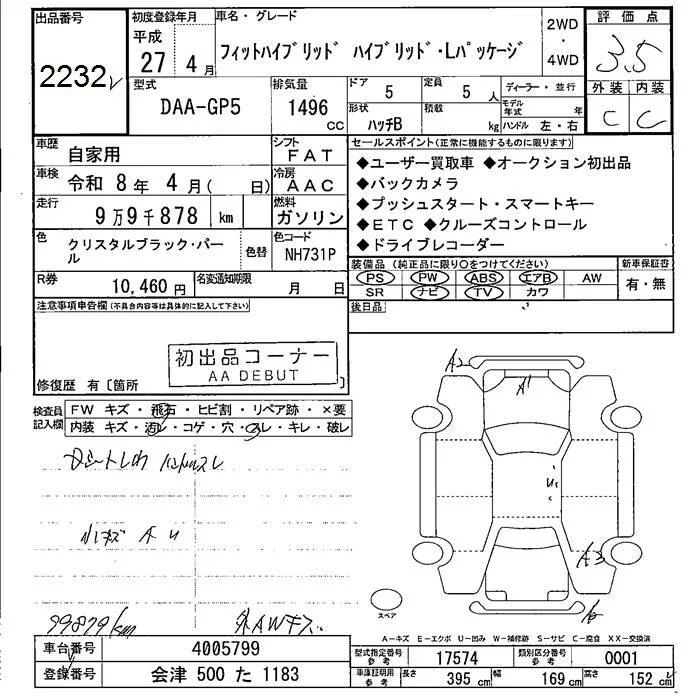 出品番号
2232
初度登録年月
平成
27 4月
車名・グレード
フィットハイブリッド ハイブリッド・Lパッケージ
2WD
・
4WD
評価点
3.5
外装 内装
C C
型式
DAA-GP5
排気量
1496
CC
ドア
5
定員
5 人
ディーラー・並行
形状
ハッチB
積載
kg
モデル年式 年
ハンドル 左・右
車歴
自家用
シフト
FAT
車検
令和 8年 4月( 日)
冷房
AAC
走行
9万9千878 km
燃料
ガソリン
色
クリスタルブラック・パール
色替
色コード
NH731P
R券
10,460 円
名変通知期限
月 日
セールスポイント(正常に機能するものに限ります)
◆ユーザー買取車 ◆オークション初出品
◆バックカメラ
◆プッシュスタート・スマートキー
◆ETC ◆クルーズコントロール
◆ドライブレコーダー
装備品(純正品に限り○をつけてください)
PS PW ABS エアB AW
SR ナビ TV カワ
新車保証書
有・無
後日品
注意事項申告欄(不具合内容等は具体的に記入して下さい)
初出品コーナー
AA DEBUT
修復歴 有〔箇所 〕
検査員記入欄
FW キズ・飛石・ヒビ割・リペア跡・×要
内装 キズ・汚レ・コゲ・穴・スレ・キレ・破レ
小キズ A U
99879km
外AWキズ
A2
A1
U1
A3
スペア
A-キズ E-エクボ U-凹み W-補修跡 S-サビ C-腐食 XX-交換済
車台番号
4005799
登録番号
会津 500 た 1183
型式指定番号
参考
17574
類別区分番号
参考
0001
車庫証明用
参考
長さ 395 cm 幅 169 cm 高さ 152 cm